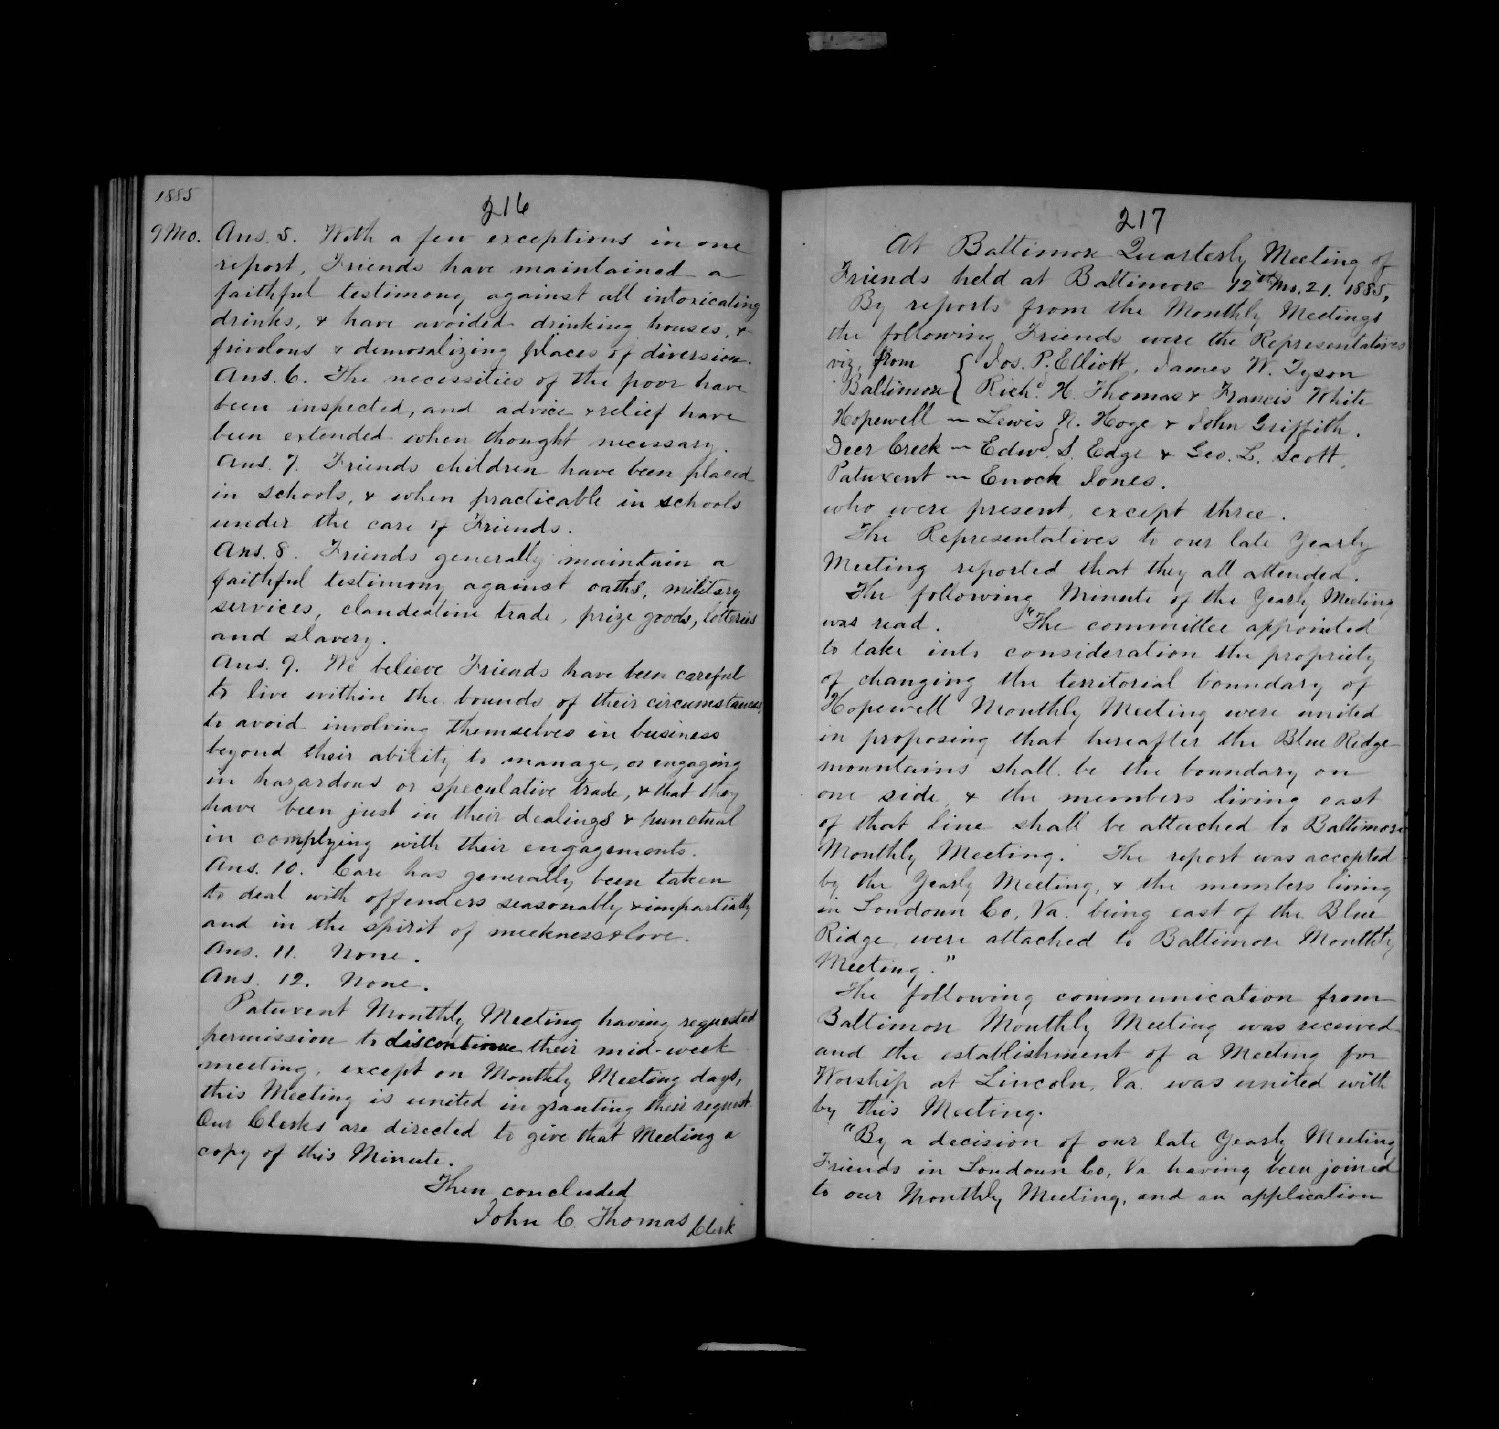 1885
216
9 Mo. Ans. 5. With a few exceptions in one
report, Friends have maintained a
faithful testimony against all intoxicating
drinks, & have avoided drinking houses, &
frivolous & demoralizing places of diversion.
Ans. 6. The necessities of the poor have
been inspected, and advice & relief have
been extended when thought necessary.
Ans. 7. Friends children have been placed
in schools, & when practicable in schools
under the care of Friends.
Ans. 8. Friends generally maintain a
faithful testimony against oaths, military
services, clandestine trade, prize goods, lotteries
and slavery.
Ans. 9. We believe Friends have been careful
to live within the bounds of their circumstances,
to avoid involving themselves in business
beyond their ability to manage, or engaging
in hazardous or speculative trade, & that they
have been just in their dealings & punctual
in complying with their engagements.
Ans. 10. Care has generally been taken
to deal with offenders seasonably & impartially
and in the spirit of meekness & love.
Ans. 11. None.
Ans. 12. None.
Patuxent Monthly Meeting having requested
permission to discontinue their mid-week
meeting, except on Monthly Meeting days,
this Meeting is united in granting their request.
Our Clerks are directed to give that Meeting a
copy of this Minute.
Then concluded
John C. Thomas Clerk
217
At Baltimore Quarterly Meeting of
Friends held at Baltimore 12th Mo. 21. 1885,
By reports from the Monthly Meetings
the following Friends were the Representatives
viz, from { Jos. P. Elliott, James W. Tyson
Baltimore { Richd. H. Thomas & Francis White
Hopewell — Lewis N. Hoge & John Griffith.
Deer Creek — Edwd. S. Edge & Geo. L. Scott,
Patuxent — Enoch Jones.
who were present, except three.
The Representatives to our late Yearly
Meeting reported that they all attended.
The following Minute of the Yearly Meeting
was read. "The committee appointed
to take into consideration the propriety
of changing the territorial boundary of
Hopewell Monthly Meeting were united
in proposing that hereafter the Blue Ridge
mountains shall be the boundary on
one side, & the members living east
of that line shall be attached to Baltimore
Monthly Meeting. The report was accepted
by the Yearly Meeting, & the members living
in Loudoun Co, Va. being east of the Blue
Ridge, were attached to Baltimore Monthly
Meeting."
The following communication from
Baltimore Monthly Meeting was received
and the establishment of a Meeting for
Worship at Lincoln, Va. was united with
by this Meeting.
"By a decision of our late Yearly Meeting
Friends in Loudoun Co, Va having been joined
to our Monthly Meeting, and an application